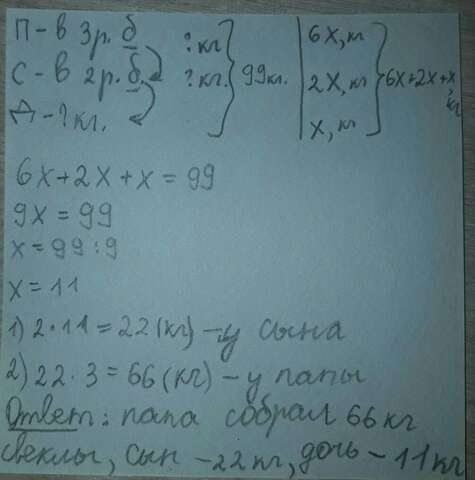 П - в 3р. б ? кг 6x, кг
С - в 2р. б. ? кг. 99кг. 2x, кг 6x+2x+x,
Д - ? кг. x, кг кг
6x+2x+x = 99
9x = 99
x = 99 : 9
x = 11
1) 2 · 11 = 22 (кг) - у сына
2) 22 · 3 = 66 (кг) - у папы
Ответ: папа собрал 66 кг
свеклы, сын - 22 кг, дочь - 11 кг